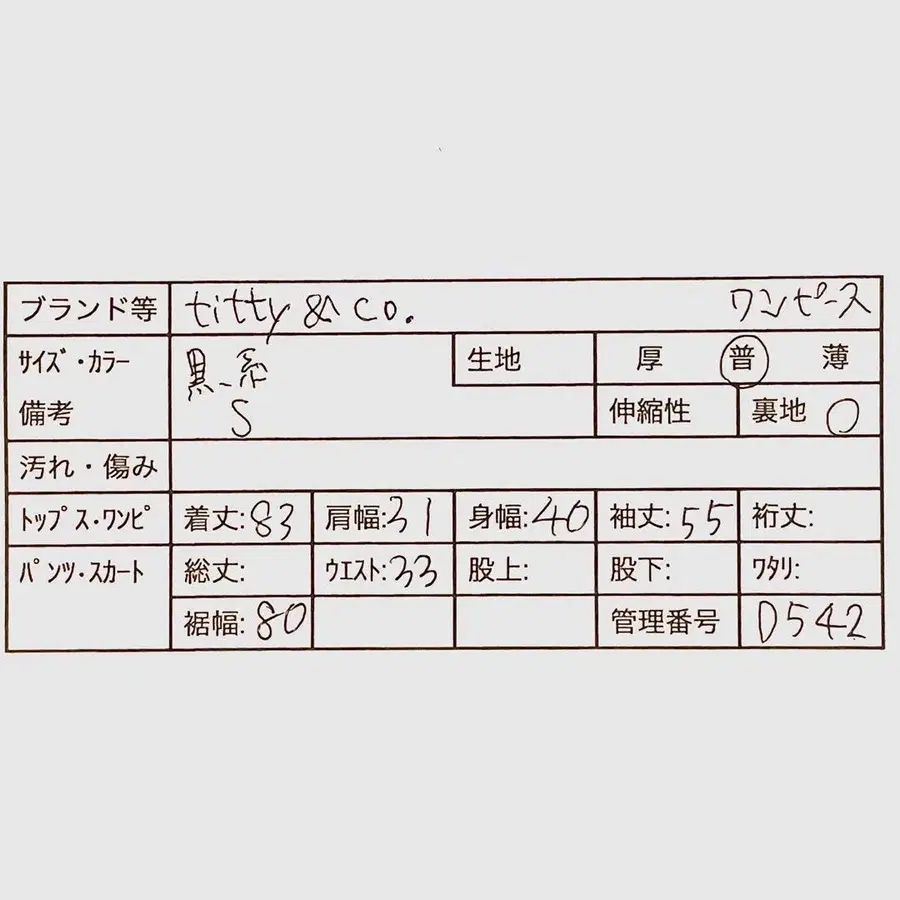 ブランド等 titty & co. ワンピース
サイズ・カラー 黒、系 生地 厚 普 薄
備考 S 伸縮性 裏地 ○
汚れ・傷み
トップス・ワンピ 着丈:83 肩幅:31 身幅:40 袖丈:55 裄丈:
パンツ・スカート 総丈: ウエスト:33 股上: 股下: ワタリ:
裾幅:80 管理番号 D542